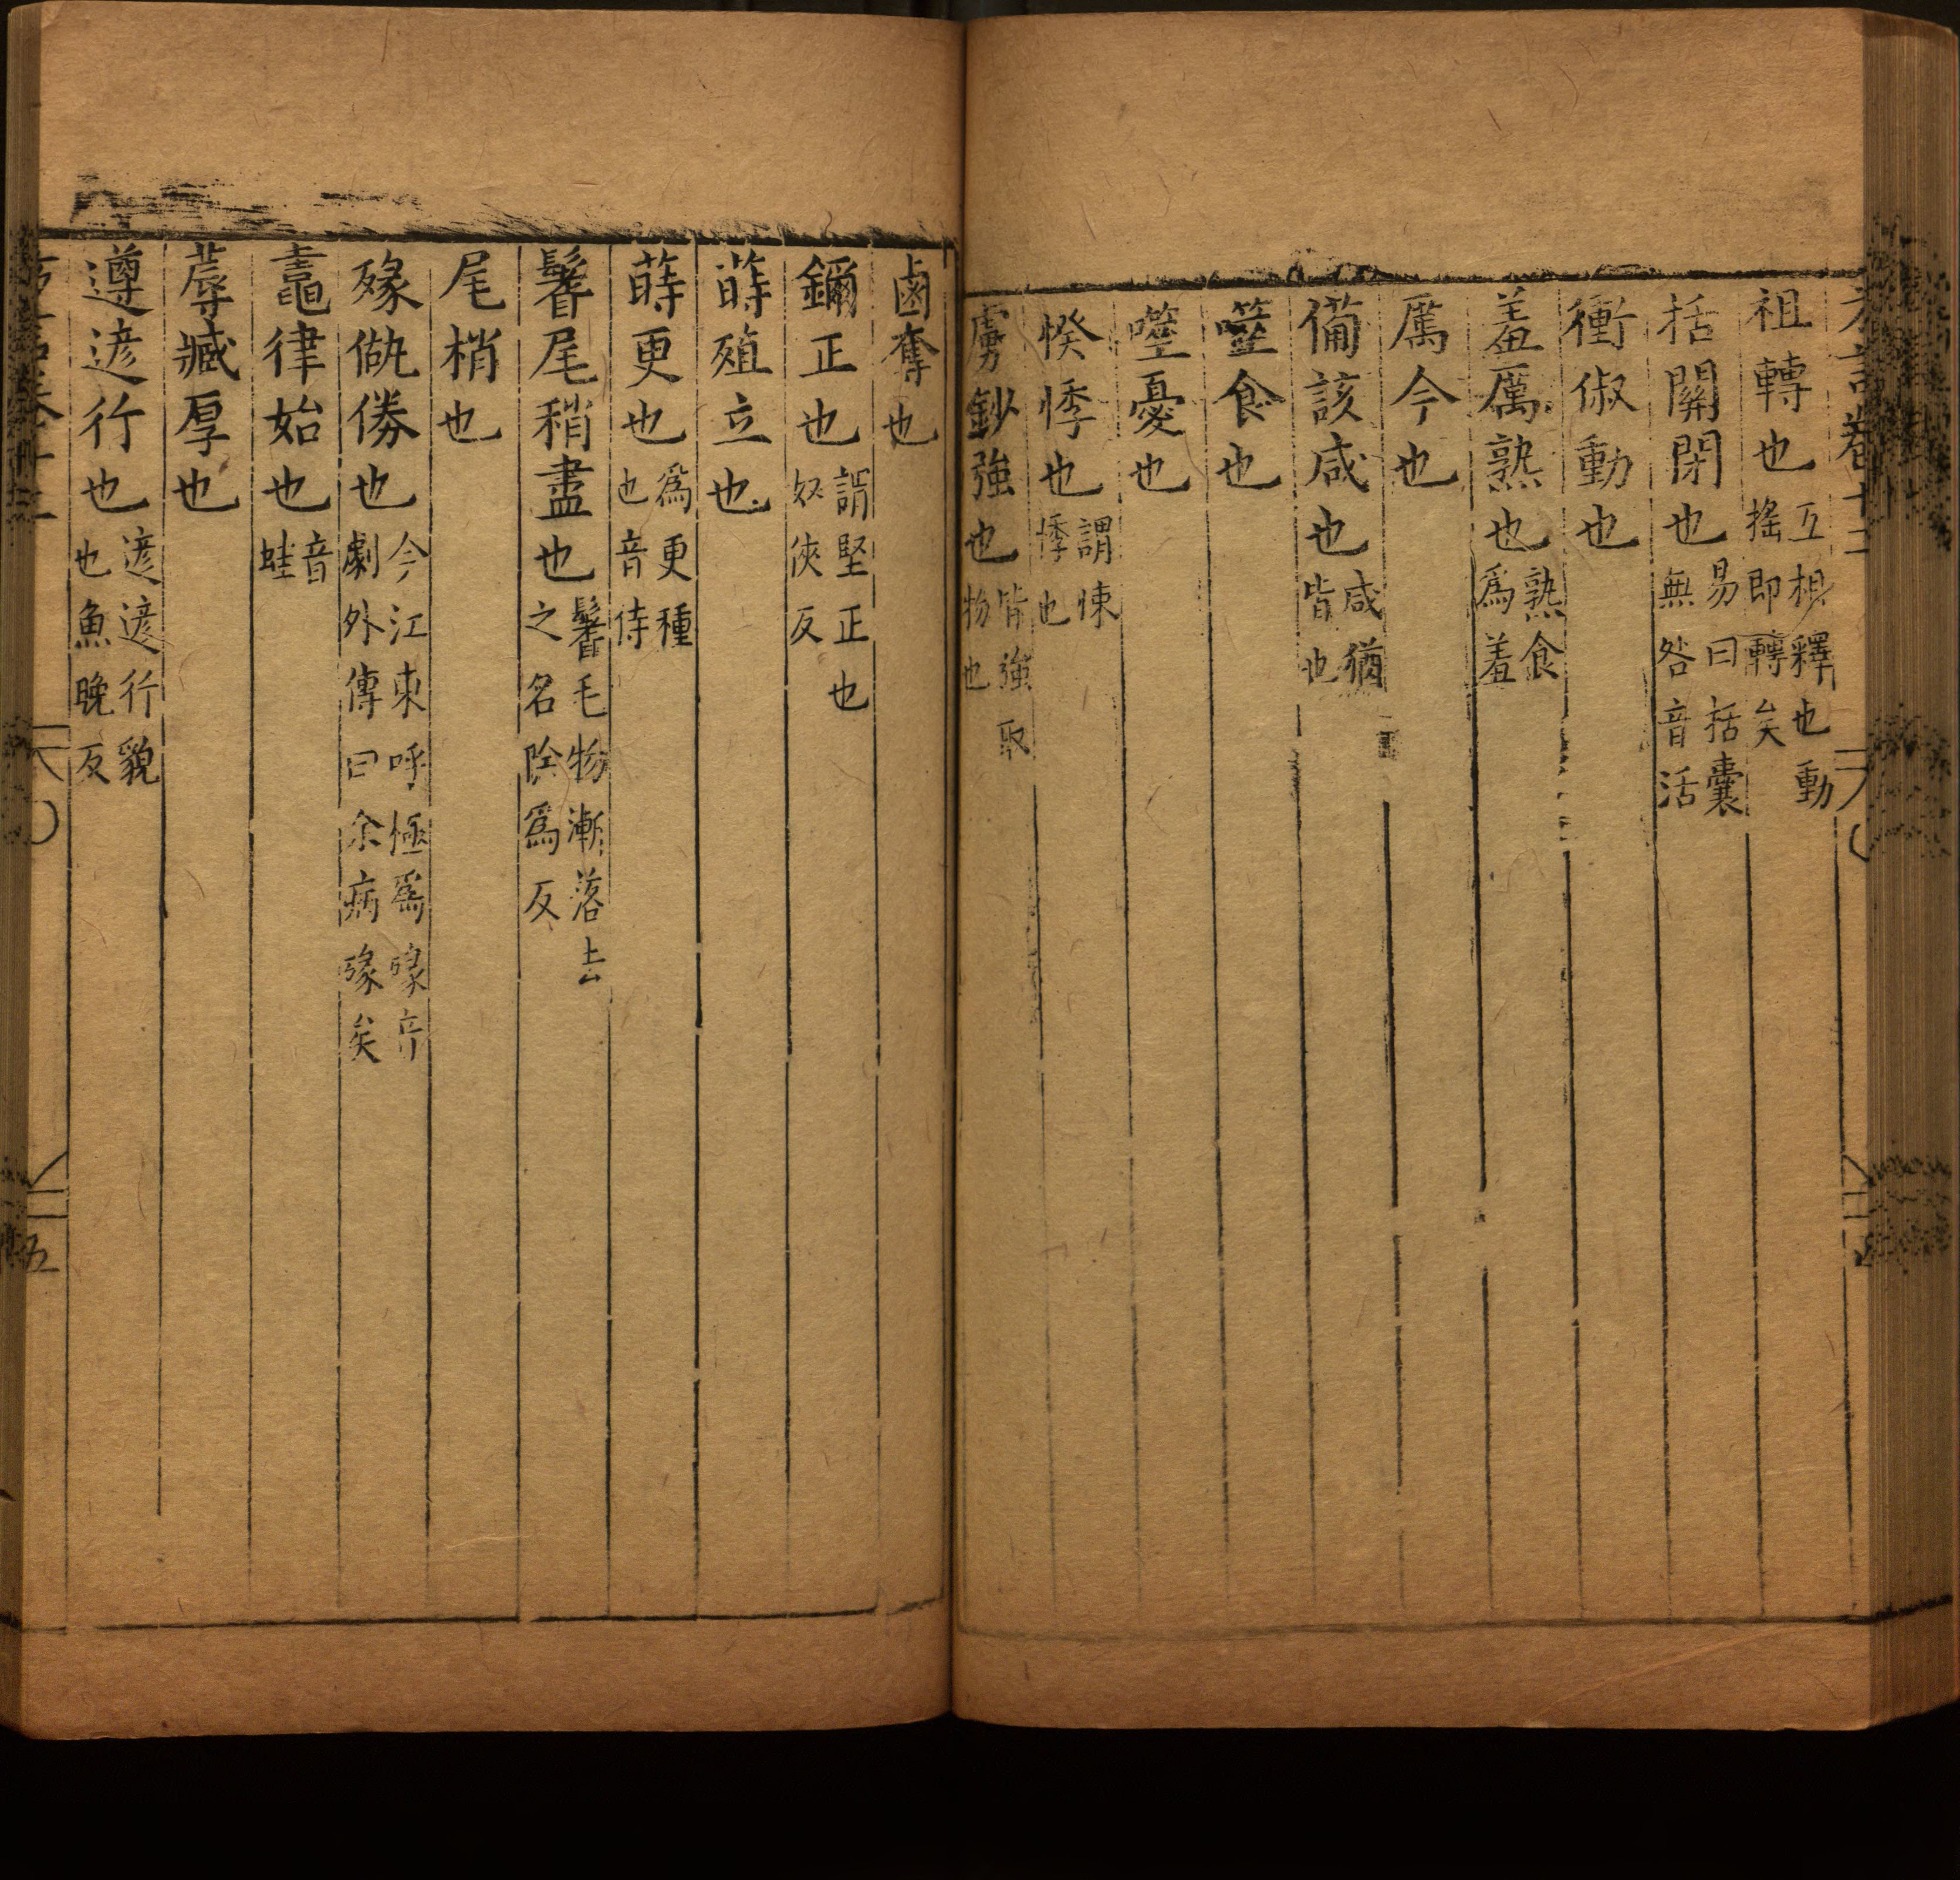 祖轉也互相釋也動搖即轉矣
括關閉也易曰括囊無咎音活
衝俶動也
羞厲熟也熟食爲羞
厲今也
備該咸也咸猶皆也
噬食也
噬憂也
㥣悸也謂悚悸也
虜鈔強也皆強取物也
鹵奪也
鑈正也謂堅正也奴俠反
蒔殖立也
蒔更也爲更種也音侍
鬌尾稍盡也鬌毛物漸落去之名陊爲反
尾梢也
㱵㑊㑝也今江東呼極爲㱵音劇外傳曰余病㱵矣
鼃律始也音蛙
蓐臧厚也
遵遃行也遃遃行貌也魚晚反
五